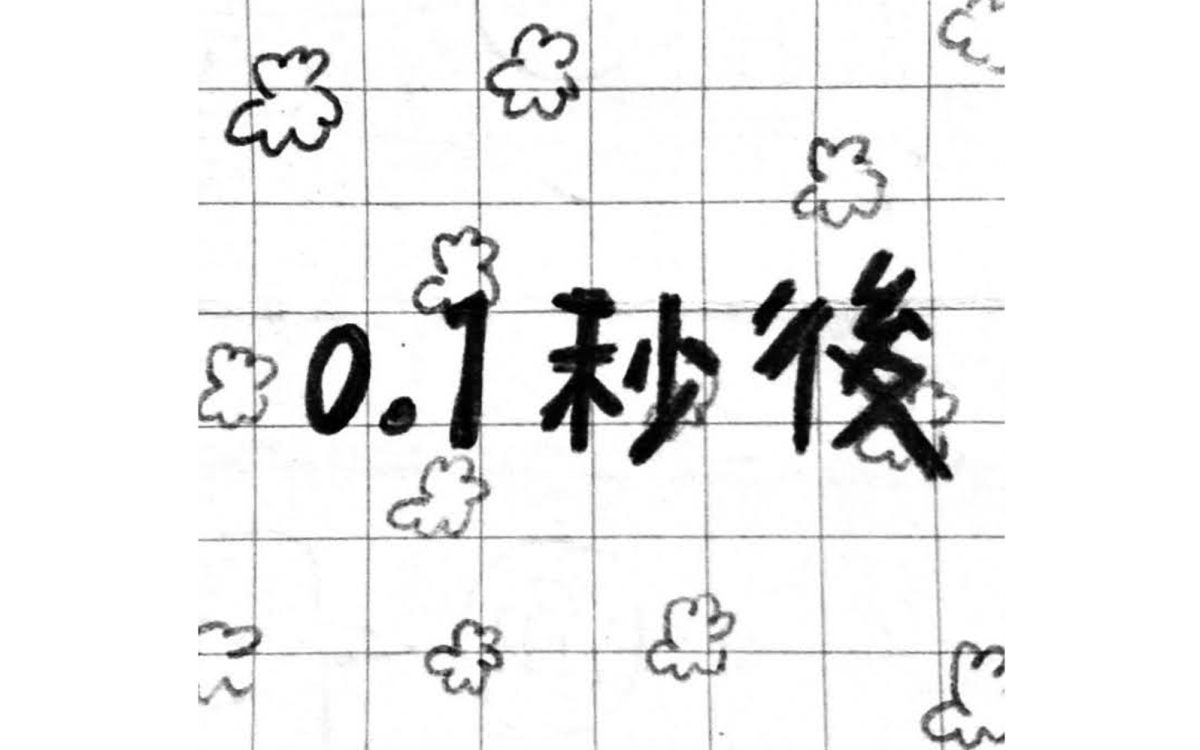 0.1秒後